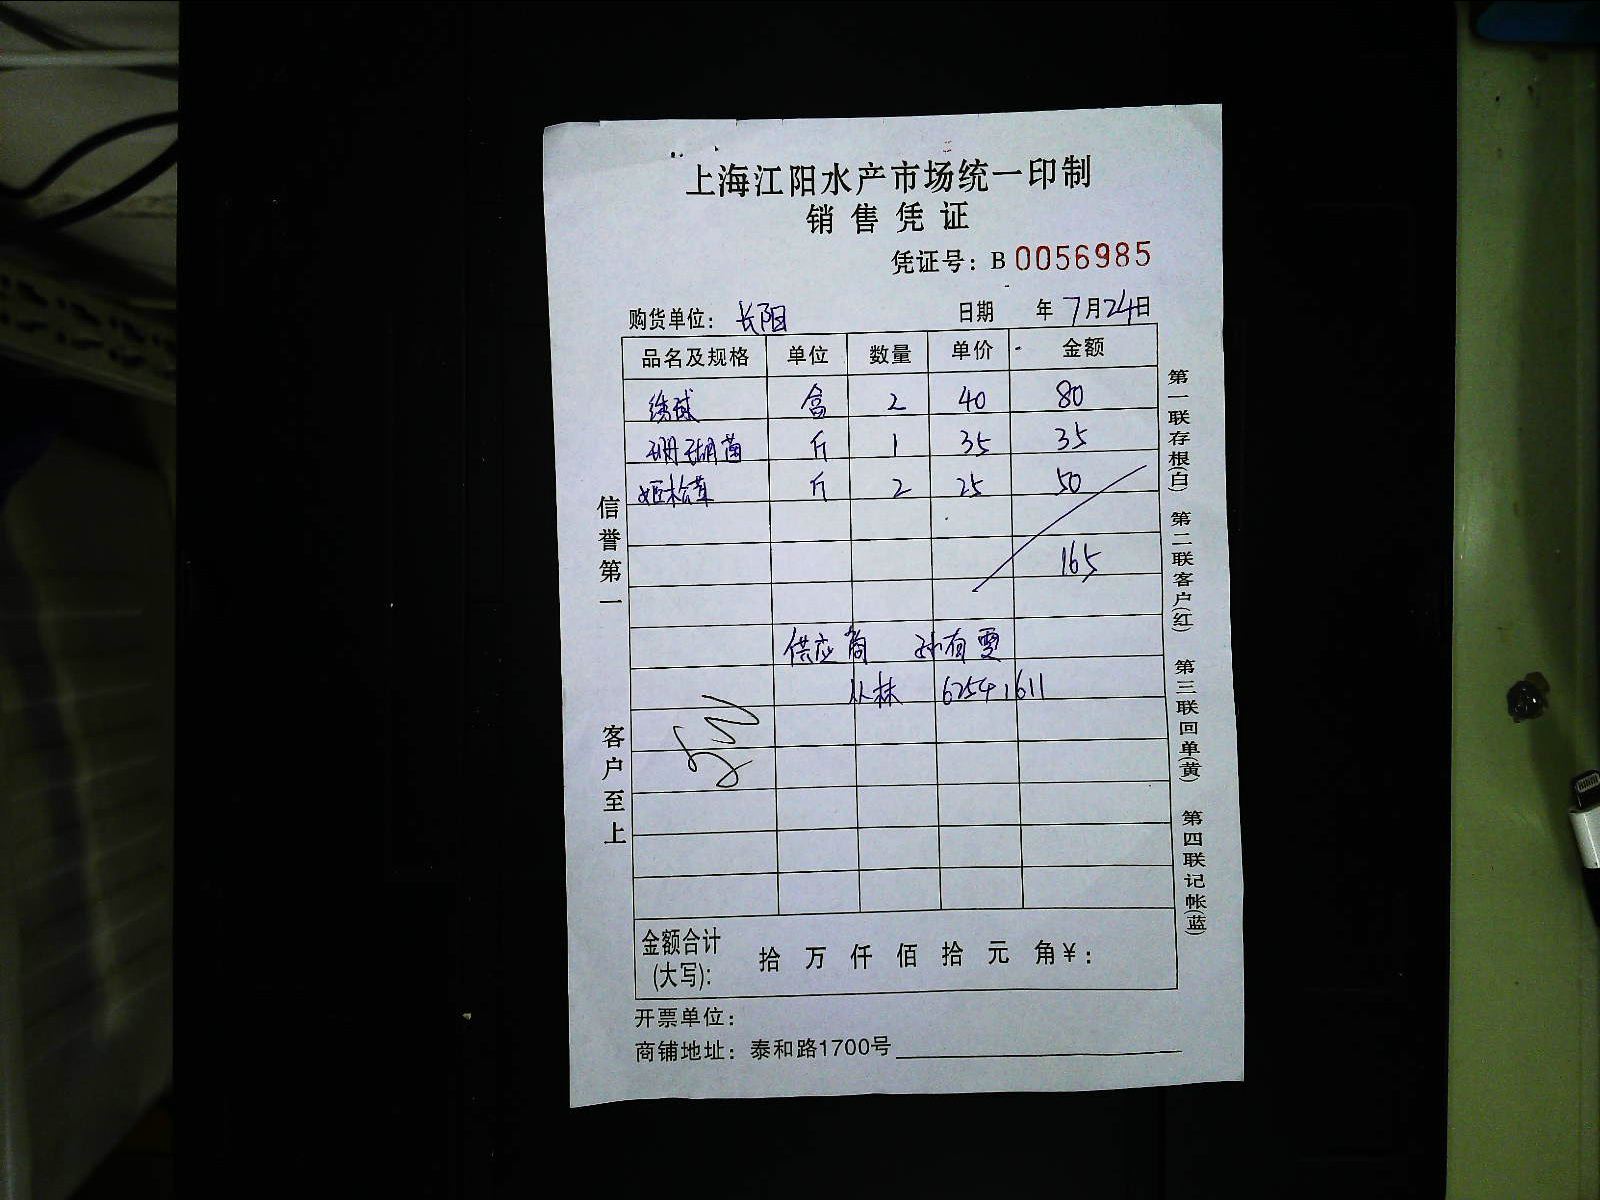 上海江阳水产市场统一印制
销售凭证
凭证号：B 0056985
购货单位：长阳 日期 年 7月24日
品名及规格 单位 数量 单价 金额
绣球 盒 2 40 80
珊瑚菌 斤 1 35 35
姬松茸 斤 2 25 50
165
供应商 孙有雯
从林 62541611
信誉第一
客户至上
第一联存根(白)
第二联客户(红)
第三联回单(黄)
第四联记帐(蓝)
金额合计
(大写): 拾 万 仟 佰 拾 元 角¥：
开票单位：
商铺地址：泰和路1700号